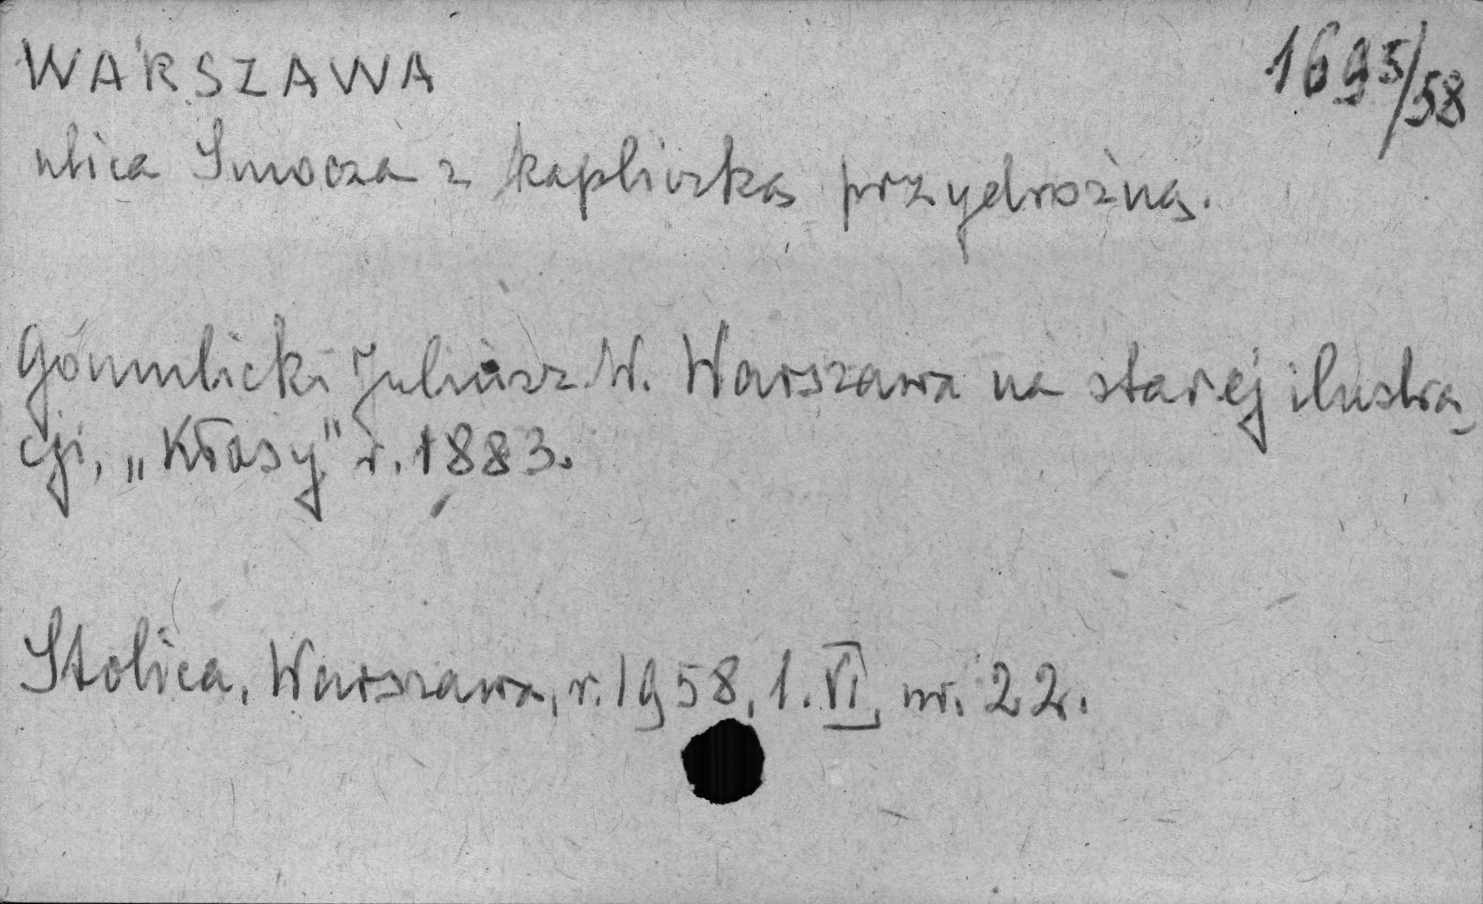 WARSZAWA
1695/58
ulica Smocza z kapliczką przydrożną.
Gomulicki Juliusz W. Warszawa na starej ilustra-
cji, „Kłosy" r. 1883.
Stolica, Warszawa, r. 1958, 1. VI, nr. 22.